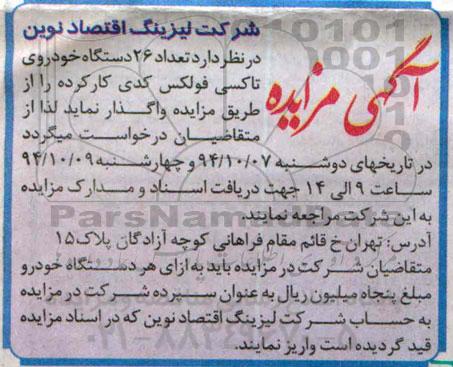 شرکت لیزینگ اقتصاد نوین
آگهی مزایده
در نظر دارد تعداد ۲۶ دستگاه خودروی
تاکسی فولکس کدی کارکرده را از
طریق مزایده واگذار نماید لذا از
متقاضیان درخواست میگردد
در تاریخهای دوشنبه ۹۴/۱۰/۰۷ و چهارشنبه ۹۴/۱۰/۰۹
ساعت ۹ الی ۱۴ جهت دریافت اسناد و مدارک مزایده
به این شرکت مراجعه نمایند.
آدرس: تهران خ قائم مقام فراهانی کوچه آزادگان پلاک ۱۵
متقاضیان شرکت در مزایده باید به ازای هر دستگاه خودرو
مبلغ پنجاه میلیون ریال به عنوان سپرده شرکت در مزایده
به حساب شرکت لیزینگ اقتصاد نوین که در اسناد مزایده
قید گردیده است واریز نمایند.